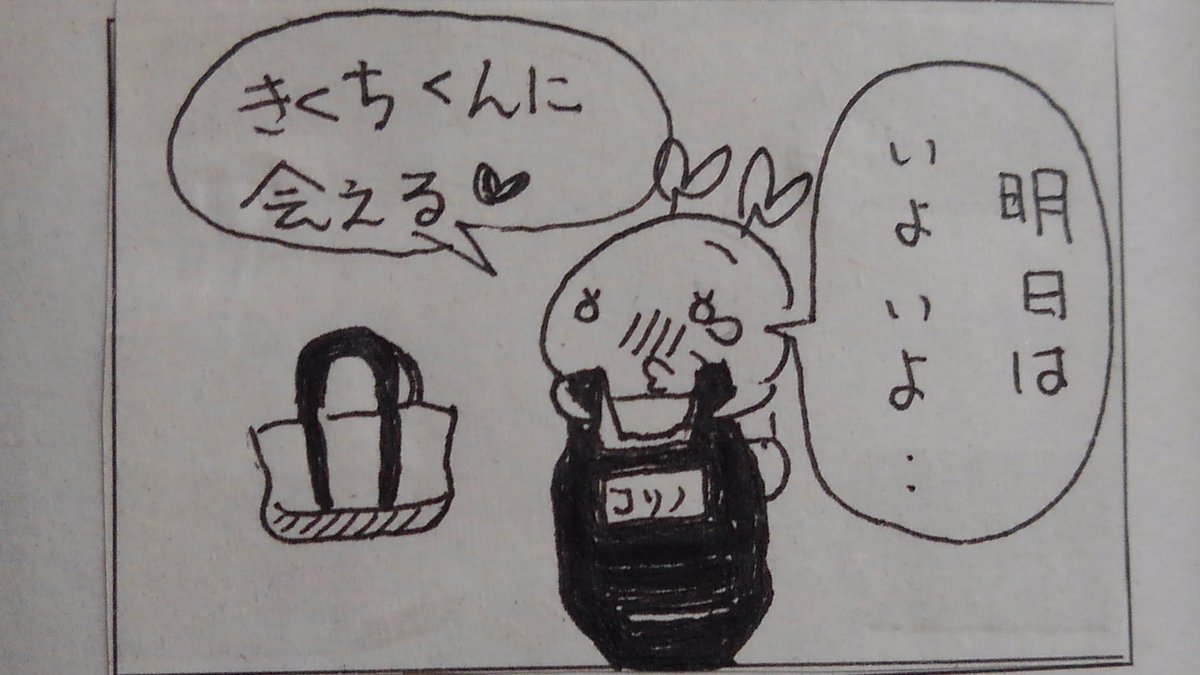 明日は
いよいよ…
きくちくんに
会える♥
コリノ